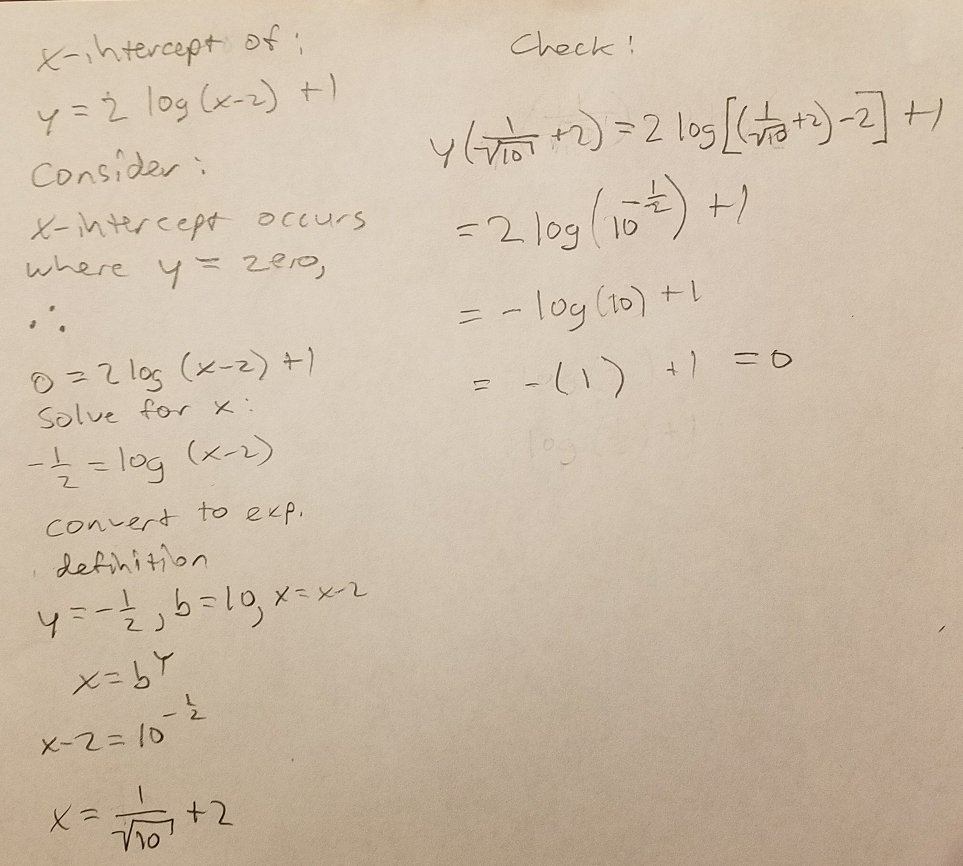 x-intercept of:
y = 2 log (x-2) +1
Consider:
x-intercept occurs
where y = zero,
∴
0 = 2 log (x-2) +1
Solve for x:
-1/2 = log (x-2)
convert to exp.
definition
y = -1/2, b = 10, x = x-2
x = b^y
x-2 = 10^(-1/2)
x = 1/√10 + 2
Check!
y(1/√10 + 2) = 2 log[(1/√10 + 2) - 2] + 1
= 2 log(10^(-1/2)) + 1
= - log (10) + 1
= - (1) + 1 = 0